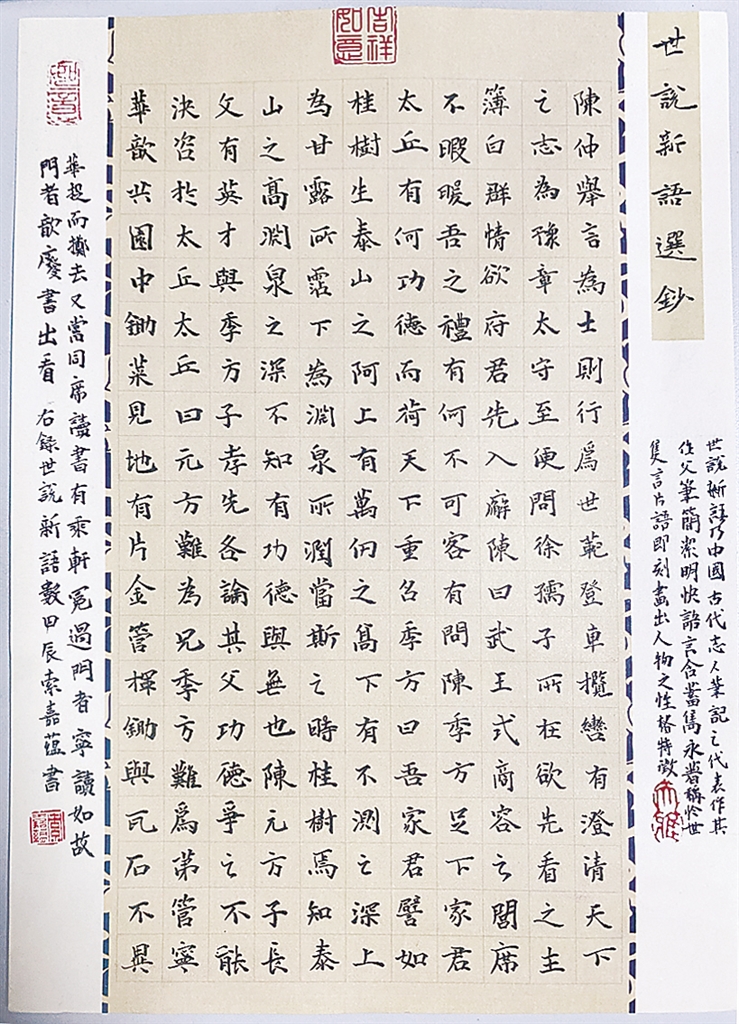 吉祥如意
世說新語選鈔
世說新語乃中國古代志人筆記之代表作其
作文筆簡潔明快語言含蓄雋永嘗稱於世
隻言片語即刻畫出人物之性格特徵
陳仲舉言為士則行為世範登車攬轡有澄清天下
之志為豫章太守至便問徐孺子所在欲先看之主
簿白群情欲府君先入廨陳曰武王式商容之閭席
不暇暖吾之禮有何不可客有問陳季方足下家君
太丘有何功德而荷天下重名季方曰吾家君譬如
桂樹生泰山之阿上有萬仞之高下有不測之深上
為甘露所霑下為淵泉所潤當斯之時桂樹焉知泰
山之高淵泉之深不知有功德與無也陳元方子長
文有英才與季方子孝先各論其父功德爭之不能
決咨於太丘太丘曰元方難為兄季方難為第管寧
華歆共園中鋤菜見地有片金管揮鋤與瓦石不異
華捉而擲去又嘗同席讀書有乘軒冕過門者寧讀如故
門者歆廢書出看 右錄世說新語數甲辰索嘉蘊書